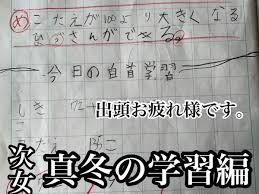 め こたえが100より大きくなる
ひっさんができる。
今日の自首学習
出頭お疲れ様です。
しき
次女
真冬の学習編